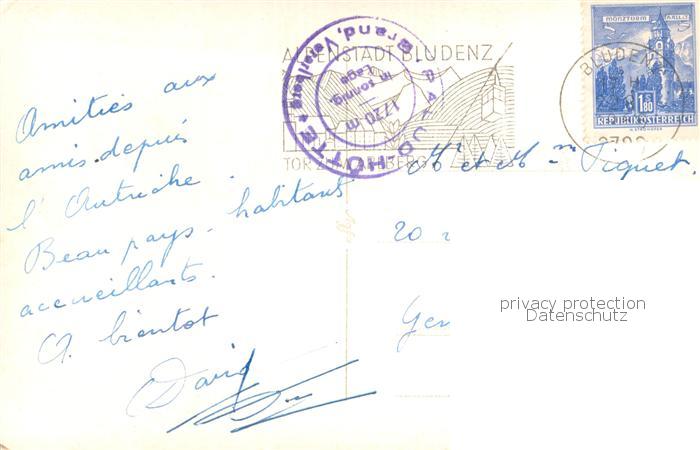 Amitiés aux
amis depuis
l'Autriche.
Beau pays - habitant
accueillants.
A bientot
David
ALPENSTADT BLUDENZ
TOR Z
BERG
HÜTTE
Brand, Vorarlberg
1720 m
in sonnig.
Lage
MÜNZTURM
HALL
1.80
S
REPUBLIK ÖSTERREICH
BLUDENZ
Mr et Mme Piguet.
20
Gen
privacy protection
Datenschutz